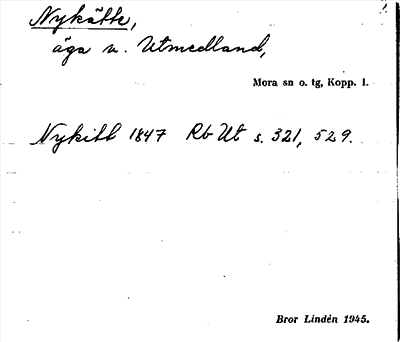 Nykätte,
äga n. Utmedland,
Mora sn o. tg, Kopp. l.
Nykitt 1847 Rb Ut s. 321, 529.
Bror Lindén 1945.